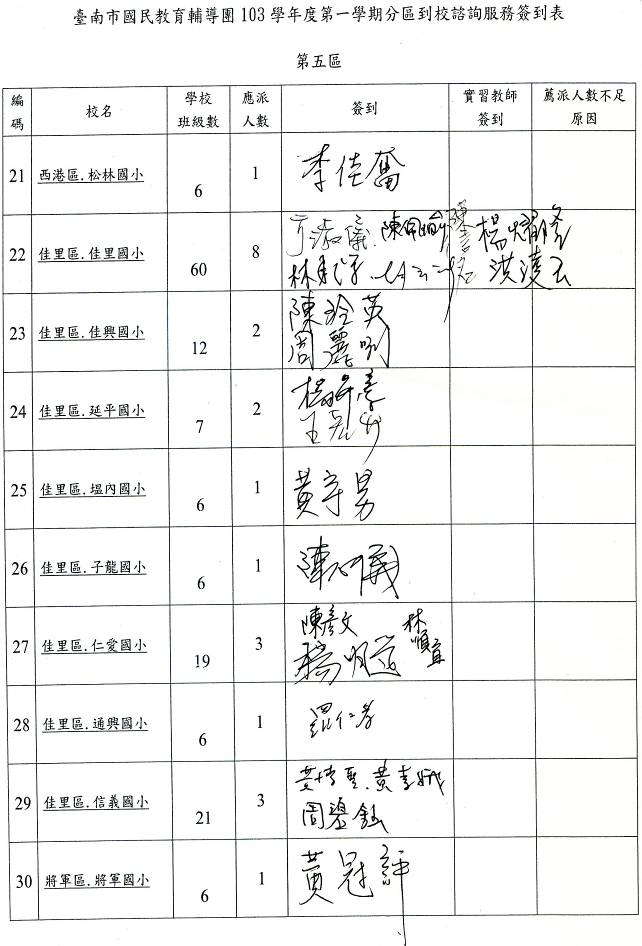 臺南市國民教育輔導團 103 學年度第一學期分區到校諮詢服務簽到表
第五區
編碼 校名 學校班級數 應派人數 簽到 實習教師簽到 薦派人數不足原因
21 西港區.松林國小 6 1 李佳奮
22 佳里區.佳里國小 60 8
23 佳里區.佳興國小 12 2 陳玲英
周麗
24 佳里區.延平國小 7 2
25 佳里區.塭內國小 6 1 黃宇男
26 佳里區.子龍國小 6 1
27 佳里區.仁愛國小 19 3 陳彥文
28 佳里區.通興國小 6 1 羅仁孝
29 佳里區.信義國小 21 3
30 將軍區.將軍國小 6 1 黃冠評